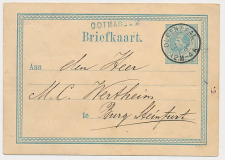 OOTMARSUM
Briefkaart.
Aan den Heer
M. C. Wertheim
te Burg Steinfurt